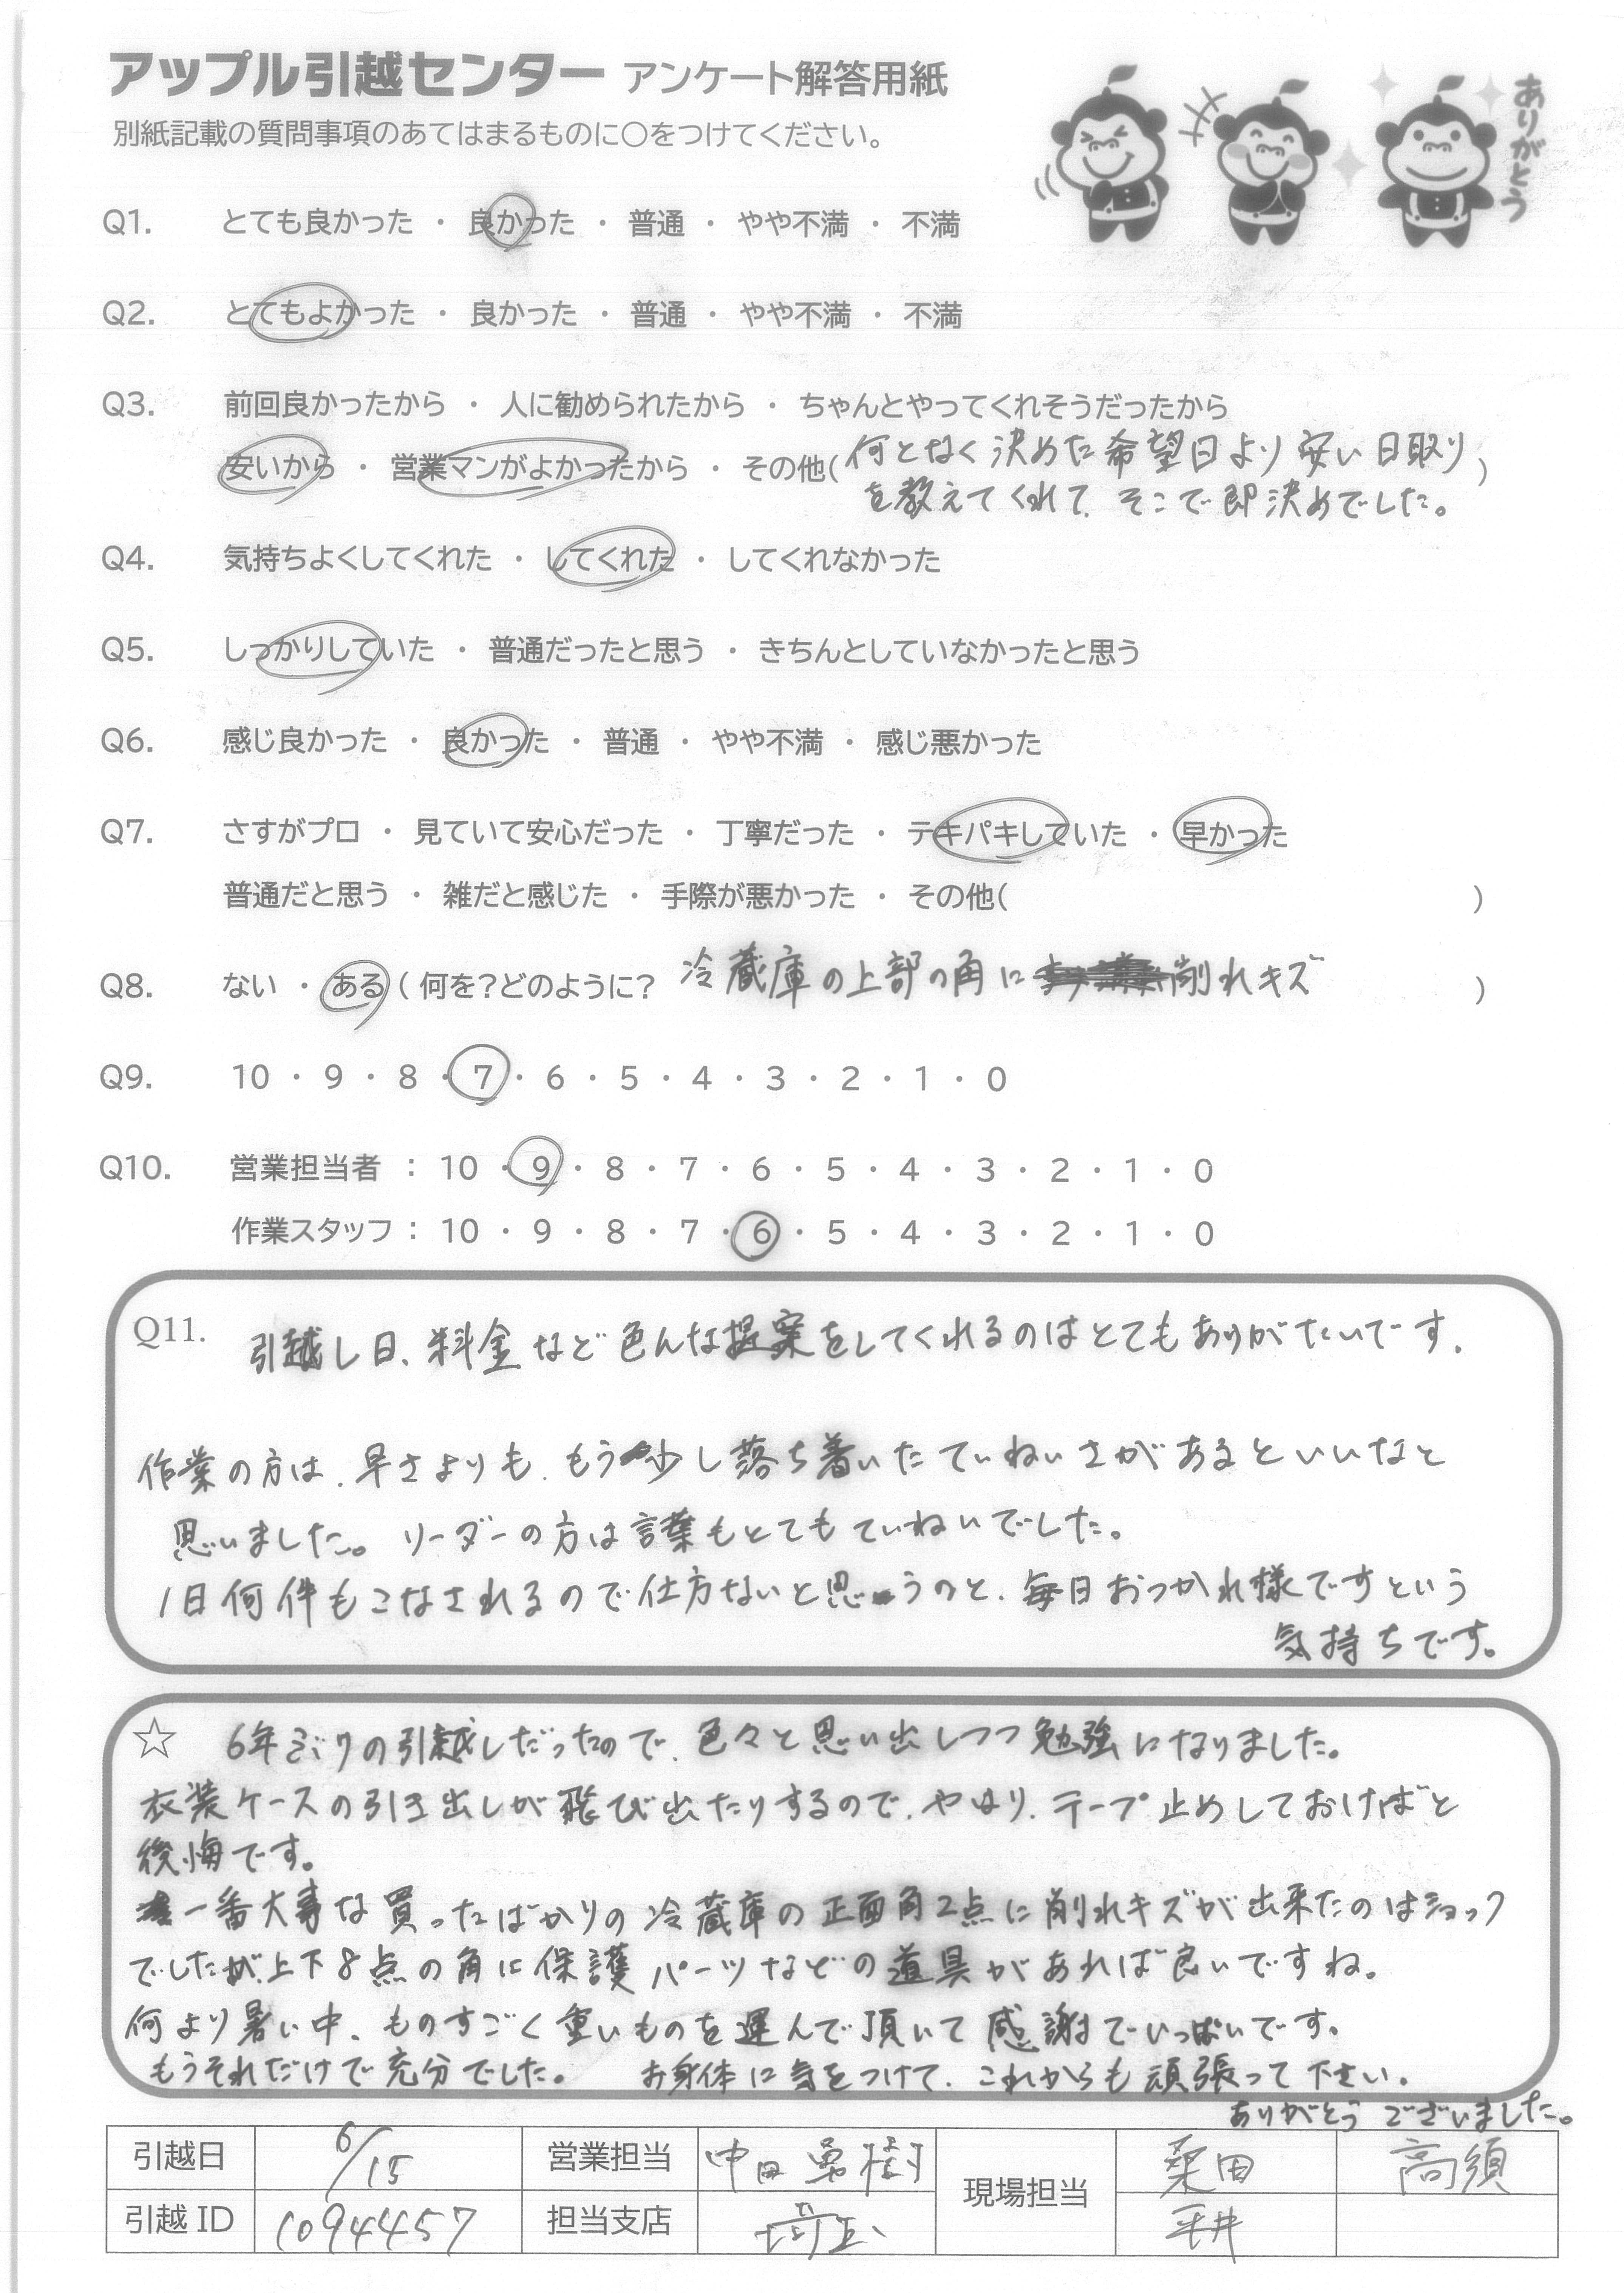 アップル引越センター アンケート解答用紙
別紙記載の質問事項のあてはまるものに○をつけてください。
ありがとう
Q1. とても良かった ・ 良かった ・ 普通 ・ やや不満 ・ 不満
Q2. とてもよかった ・ 良かった ・ 普通 ・ やや不満 ・ 不満
Q3. 前回良かったから ・ 人に勧められたから ・ ちゃんとやってくれそうだったから
安いから ・ 営業マンがよかったから ・ その他( 何となく決めた希望日より安い日取り )
を教えてくれて、そこで即決めでした。
Q4. 気持ちよくしてくれた ・ してくれた ・ してくれなかった
Q5. しっかりしていた ・ 普通だったと思う ・ きちんとしていなかったと思う
Q6. 感じ良かった ・ 良かった ・ 普通 ・ やや不満 ・ 感じ悪かった
Q7. さすがプロ ・ 見ていて安心だった ・ 丁寧だった ・ テキパキしていた ・ 早かった
普通だと思う ・ 雑だと感じた ・ 手際が悪かった ・ その他( )
Q8. ない ・ ある ( 何を?どのように? 冷蔵庫の上部の角に 削れキズ )
Q9. 10 ・ 9 ・ 8 ・ 7 ・ 6 ・ 5 ・ 4 ・ 3 ・ 2 ・ 1 ・ 0
Q10. 営業担当者 : 10 ・ 9 ・ 8 ・ 7 ・ 6 ・ 5 ・ 4 ・ 3 ・ 2 ・ 1 ・ 0
作業スタッフ : 10 ・ 9 ・ 8 ・ 7 ・ 6 ・ 5 ・ 4 ・ 3 ・ 2 ・ 1 ・ 0
Q11. 引越し日、料金など色んな提案をしてくれるのはとてもありがたいです.
作業の方は、早さよりも、もう少し落ち着いたていねいさがあるといいなと
思いました。リーダーの方は言葉もとてもていねいでした。
1日何件もこなされるので仕方ないと思うのと、毎日おつかれ様ですという
気持ちです。
☆ 6年ぶりの引越しだったので、色々と思い出しつつ勉強になりました。
衣装ケースの引き出しが飛び出たりするので、やはり、テープ止めしておけばと
後悔です。
一番大事な買ったばかりの冷蔵庫の正面角2点に削れキズが出来たのはショック
でしたが、上下8点の角に保護パーツなどの道具があれば良いですね。
何より暑い中、ものすごく重いものを運んで頂いて感謝でいっぱいです。
もうそれだけで充分でした。 お身体に気をつけて、これからも頑張って下さい。
ありがとうございました。
引越日 6/15 営業担当 中田勇樹 現場担当 桑田 高須
引越ID 1094457 担当支店 埼玉 平井